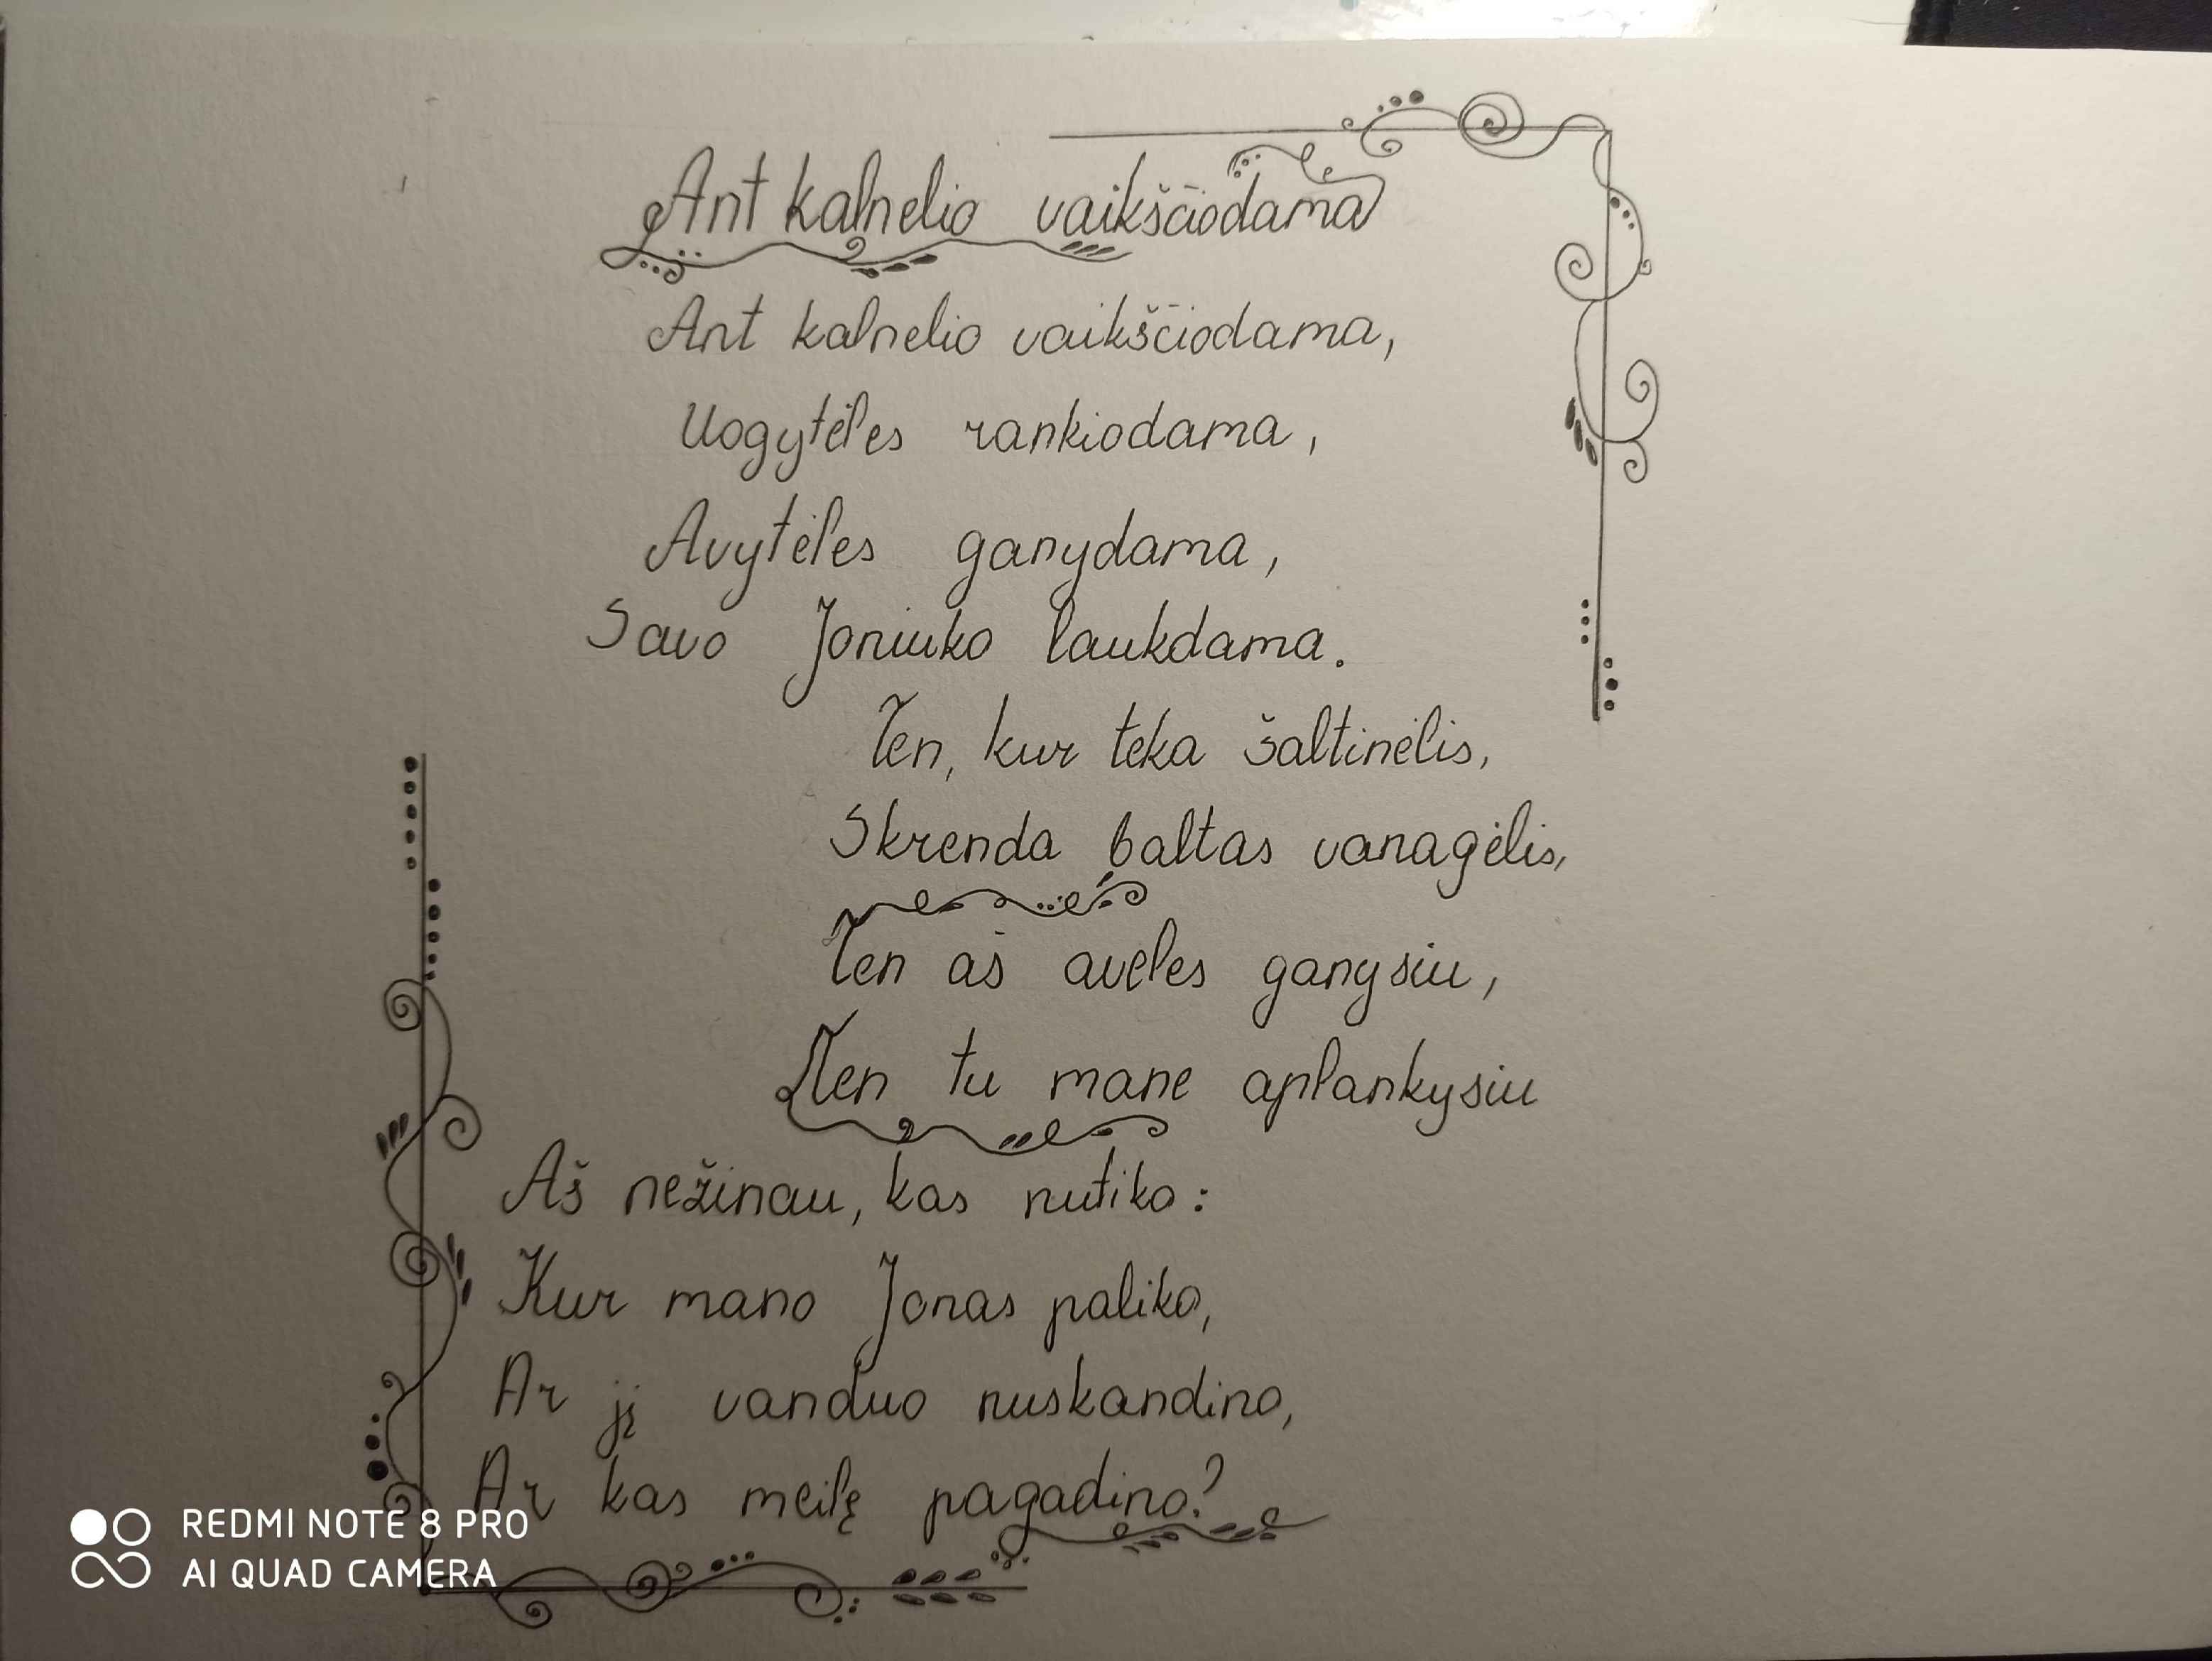 Ant kalnelio vaikščiodama
Ant kalnelio vaikščiodama,
Uogytėles rankiodama,
Avytėles ganydama,
Savo Joniuko laukdama.
Ten, kur teka šaltinėlis,
Skrenda baltas vanagėlis,
Ten aš aveles ganysiu,
Ten tu mane aplankysiu
Aš nežinau, kas nutiko:
Kur mano Jonas paliko,
Ar jį vanduo nuskandino,
Ar kas meilę pagadino?
REDMI NOTE 8 PRO
AI QUAD CAMERA